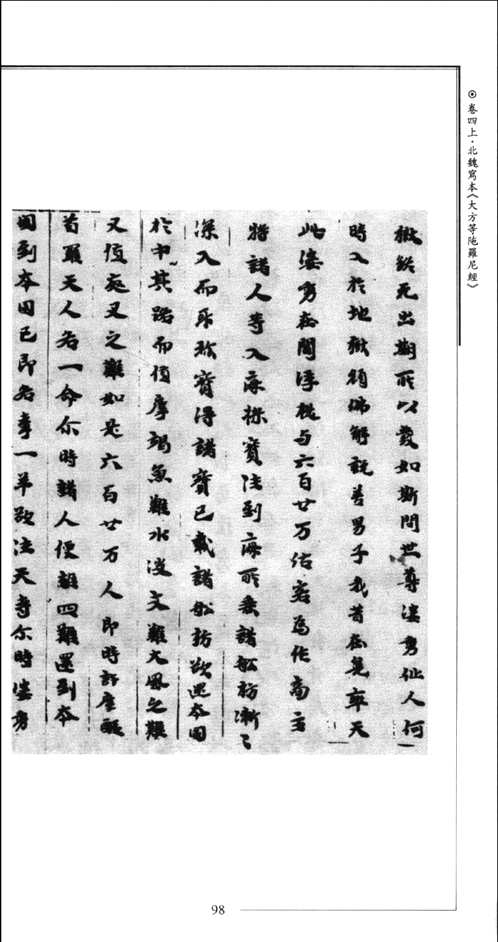 卷四上·北魏寫本《大方等陁羅尼經》
獄終无出期所以發如斯問世尊婆藪仙人何
時入於地獄願佛解說善男子我昔在兜率天
此婆藪在閻浮提与六百廿万估客為作商主
將諸人等入海採寶往到海所乘諸舩舫漸〻
深入而取珎寶得諸寶已載諸舩舫欲還本國
於中其路而值摩竭魚難水波之難大風之難
又值夜叉之難如是六百廿万人即時許摩醯
首羅天人各一命尒時諸人便離四難還到本
國到本國已即各牽一羊欲往天寺尒時婆藪
98